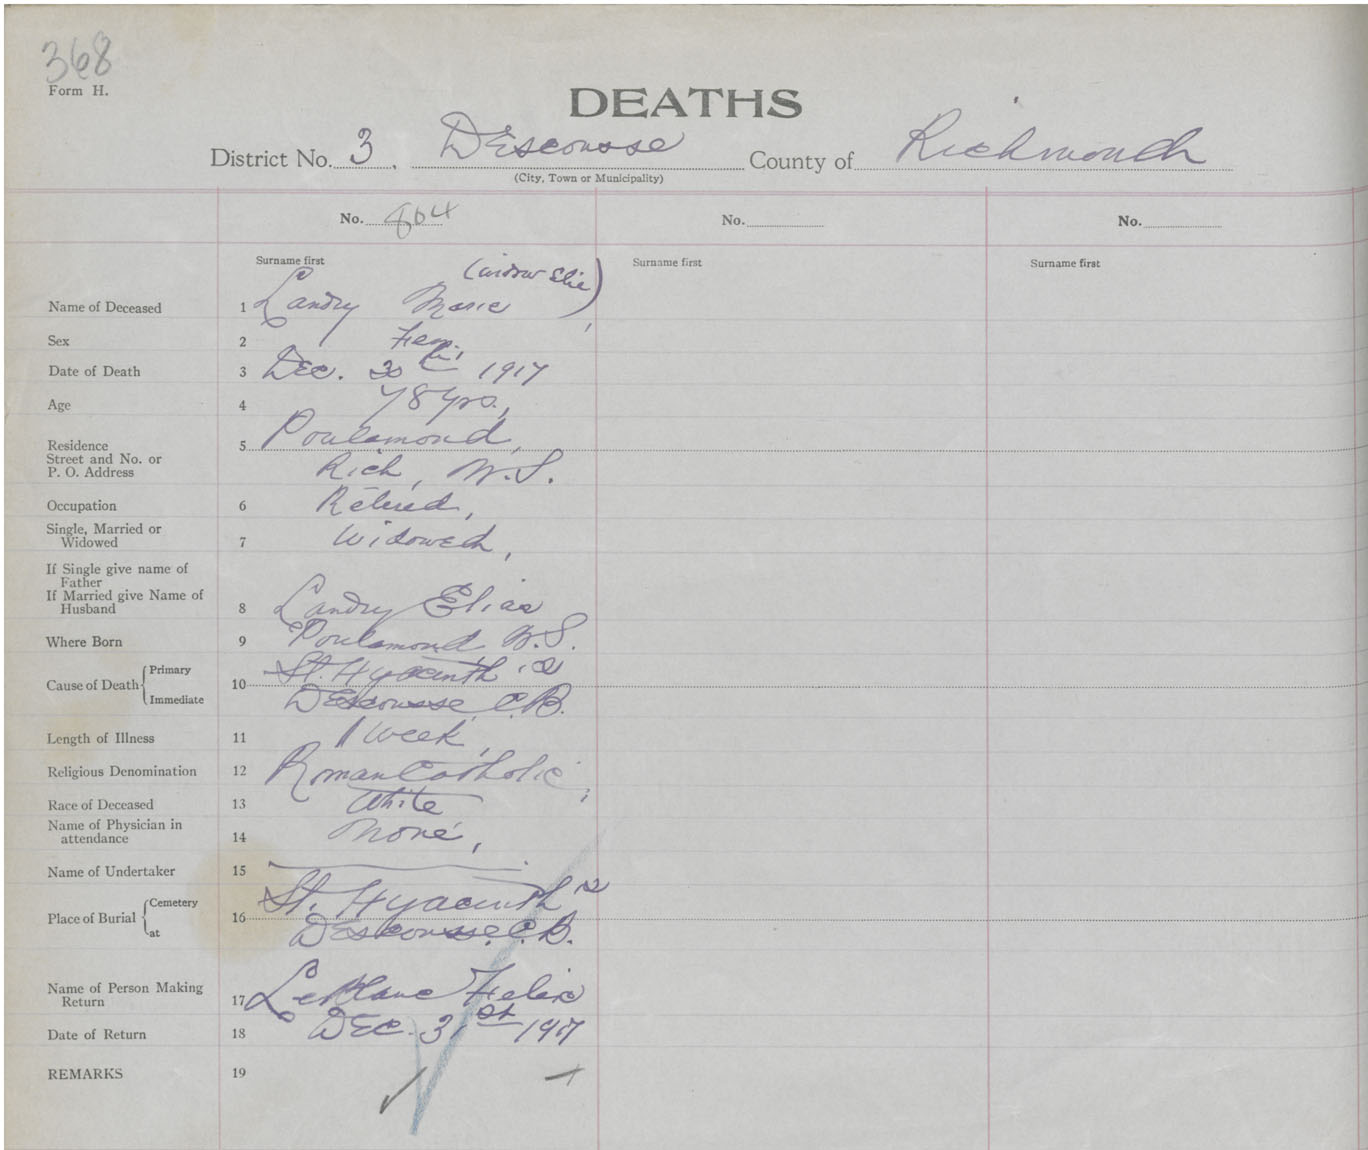 368
Form H.
DEATHS
District No. 3, Descousse County of Richmond
(City, Town or Municipality)
No. 804 No. No.
Surname first Surname first Surname first
(widow Elie)
Name of Deceased 1 Landry Marie
Sex 2 Fem.
Date of Death 3 Dec. 30th 1917
Age 4 78 yrs.,
Residence 5 Poulamond,
Street and No. or
P. O. Address Rich, N.S.
Occupation 6 Retired,
Single, Married or
Widowed 7 Widowed,
If Single give name of
Father
If Married give Name of
Husband 8 Landry Elias
Where Born 9 Poulamond, N.S.
Cause of Death { Primary 10 St. Hyacinth's
Immediate Descousse, C.B.
Length of Illness 11 1 week,
Religious Denomination 12 Roman Catholic,
Race of Deceased 13 White
Name of Physician in
attendance 14 None,
Name of Undertaker 15
Place of Burial { Cemetery 16 St. Hyacinth's
at Descousse. C.B.
Name of Person Making
Return 17 LeBlanc Felix
Date of Return 18 Dec. 31st 1917
REMARKS 19